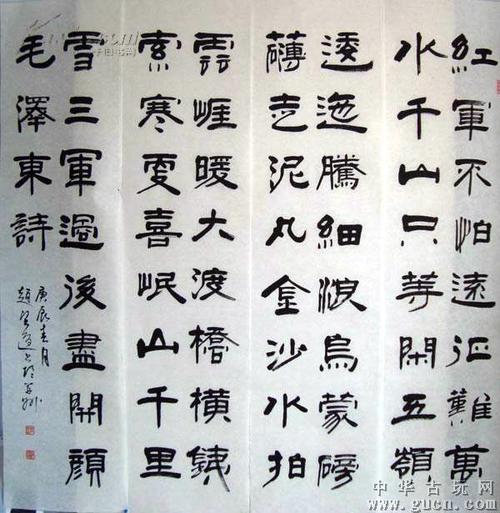 紅軍不怕遠征難萬
水千山只等閑五嶺
逶迤騰細浪烏蒙磅
礴走泥丸金沙水拍
雲崖暖大渡橋橫鐵
索寒更喜岷山千里
雪三軍過後盡開顏
毛澤東詩
庚辰春月
趙
中华古玩网
www.gucn.com